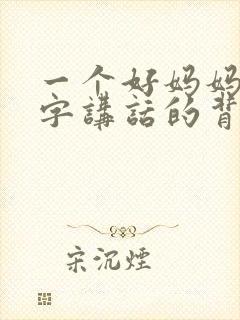 一个好妈妈
字講話的背
宋沉煙